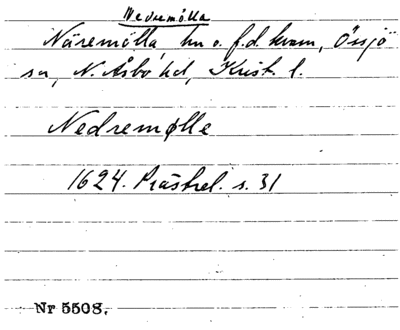 Nedremölla
Näremölla, hn o. f.d. kvarn, Össjö
sn, N. Åsbo hd, Krist. l.
Nedremølle
1624. Prästrel. s. 31
Nr 5508.